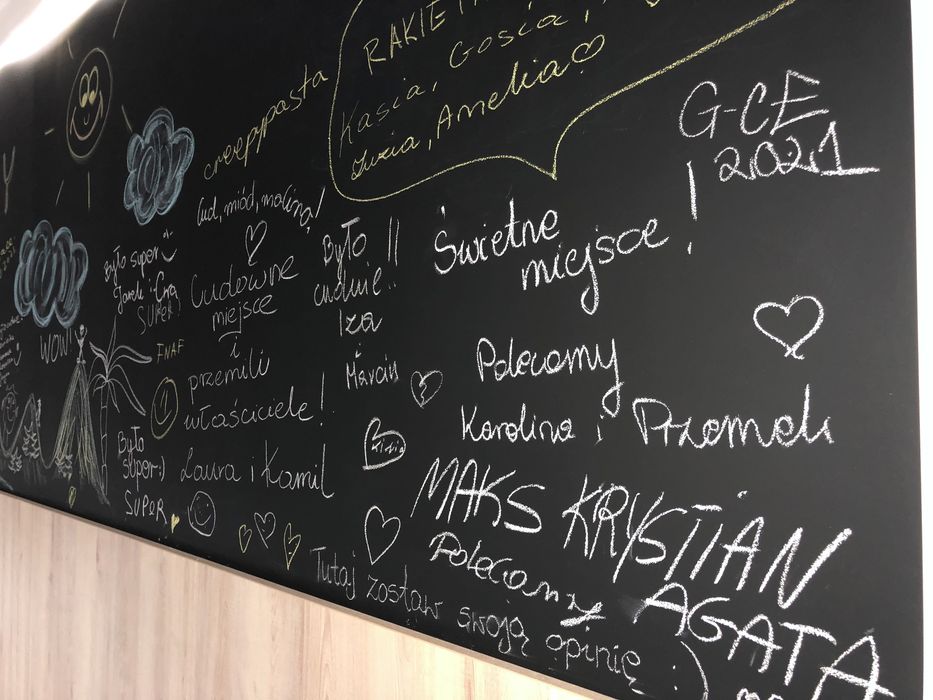 creepypasta
Kasia, Gosia,
Zuzia, Amelia
G-CE
2021
Cud, miód, malina!
Cudowne
miejsce
i
przemili
właściciele!
Laura i Kamil
Było
cudnie!!
Iza
Marcin
Świetne
miejsce!
Polecamy
Karolina i Przemek
Było super
SUPER!
WOW!
FNAF
Było
super:)
SUPER
MAKS KRYSTIAN
Polecamy AGATA
Tutaj zostaw swoją opinię :)